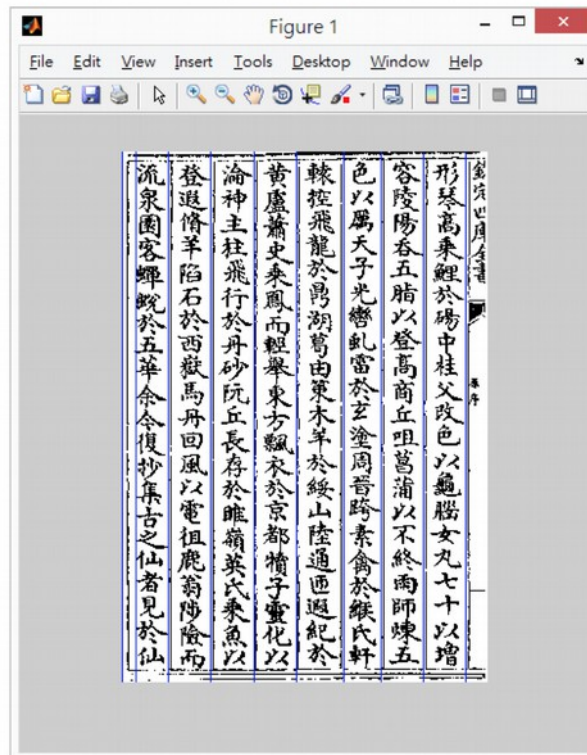 Figure 1
File Edit View Insert Tools Desktop Window Help
欽定四庫全書
原序
形琴高乘鯉於碭中桂父改色以龜腦女丸七十以增
容陵陽吞五脂以登高商丘咀菖蒲以不終雨師煉五
色以厲天子光轡虬雷於玄塗周晉跨素禽於緱氏軒
轅控飛龍於鼎湖葛由策木羊於綏山陸通匝遐紀於
黄廬蕭史乘鳳而輕舉東方飄衣於京都犢子靈化以
淪神主柱飛行於丹砂阮丘長存於睢嶺英氏乘魚以
登遐脩羊陷石於西嶽馬丹回風以電徂鹿翁陟險而
流泉園客蟬蛻於五華余今復抄集古之仙者見於仙